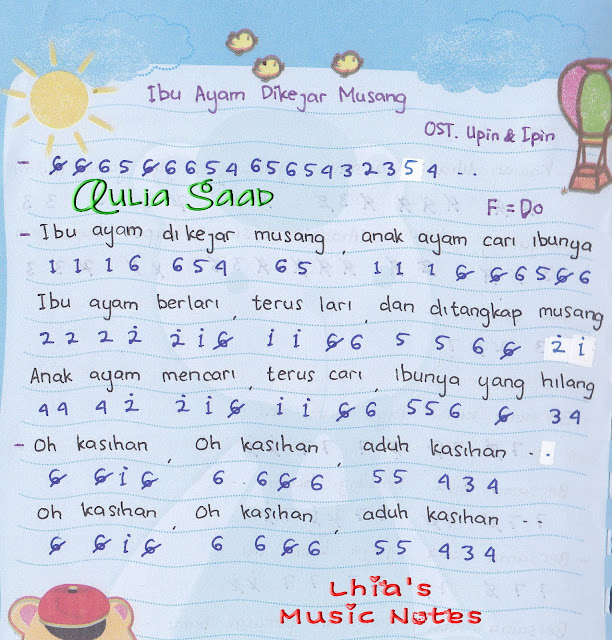 Ibu Ayam Dikejar Musang
OST. Upin & Ipin
- 6̸ 6̸ 6 5 6̸ 6 6 5 4 6 5 6 5 4 3 2 3 5 4 . .
Aulia Saad
F = Do
- Ibu ayam dikejar musang , anak ayam cari ibunya
1 1 1 6 6 5 4 6 5 1 1 1 6̸ 6̸ 6 5 6̸ 6
Ibu ayam berlari , terus lari , dan ditangkap musang
2 2 2 2̇ 2̇ 1̇ 6̸ 1̇ 1̇ 6̸ 6 5 5 6 6̸ 2̇ 1̇
Anak ayam mencari , terus cari , ibunya yang hilang
4 4 4 2̇ 2̇ 1̇ 6̸ 1̇ 1̇ 6̸ 6 5 5 6 6̸ 3 4
- Oh kasihan , Oh kasihan , aduh kasihan . .
6̸ 6̸ 1̇ 6̸ 6 6 6̸ 6 5 5 4 3 4
Oh kasihan , Oh kasihan , aduh kasihan . .
6̸ 6̸ 1̇ 6̸ 6 6 6̸ 6 5 5 4 3 4
Lhia's
Music Notes